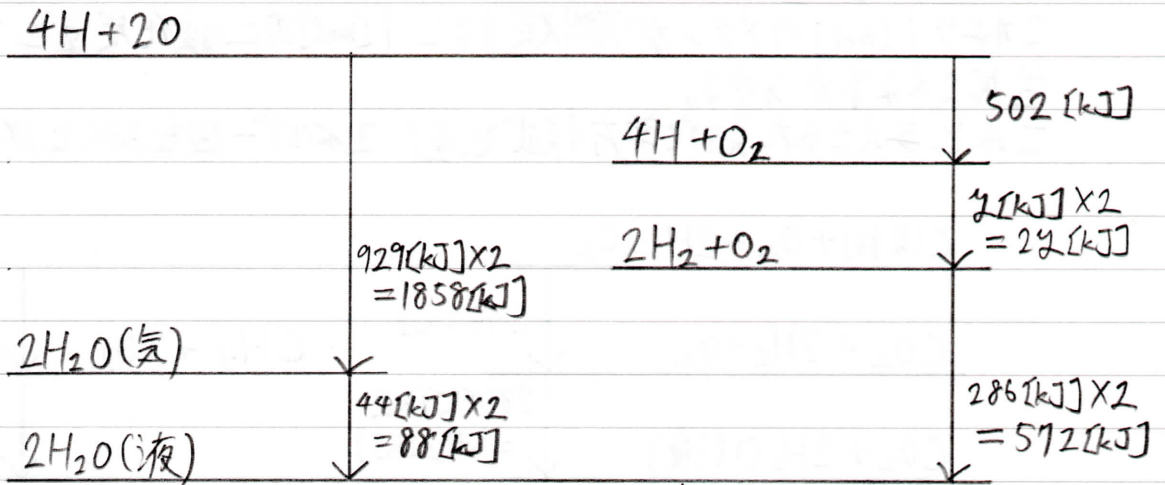 4H+2O
502[kJ]
4H+O₂
y[kJ]×2
=2y[kJ]
2H₂+O₂
929[kJ]×2
=1858[kJ]
2H₂O(気)
44[kJ]×2
=88[kJ]
286[kJ]×2
=572[kJ]
2H₂O(液)